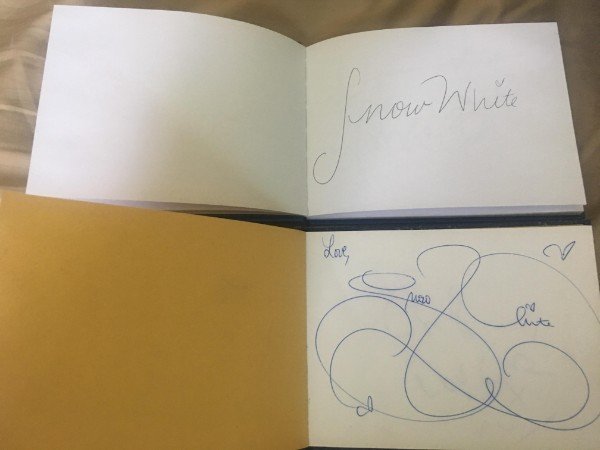 Snow White
Love,
Snow
White